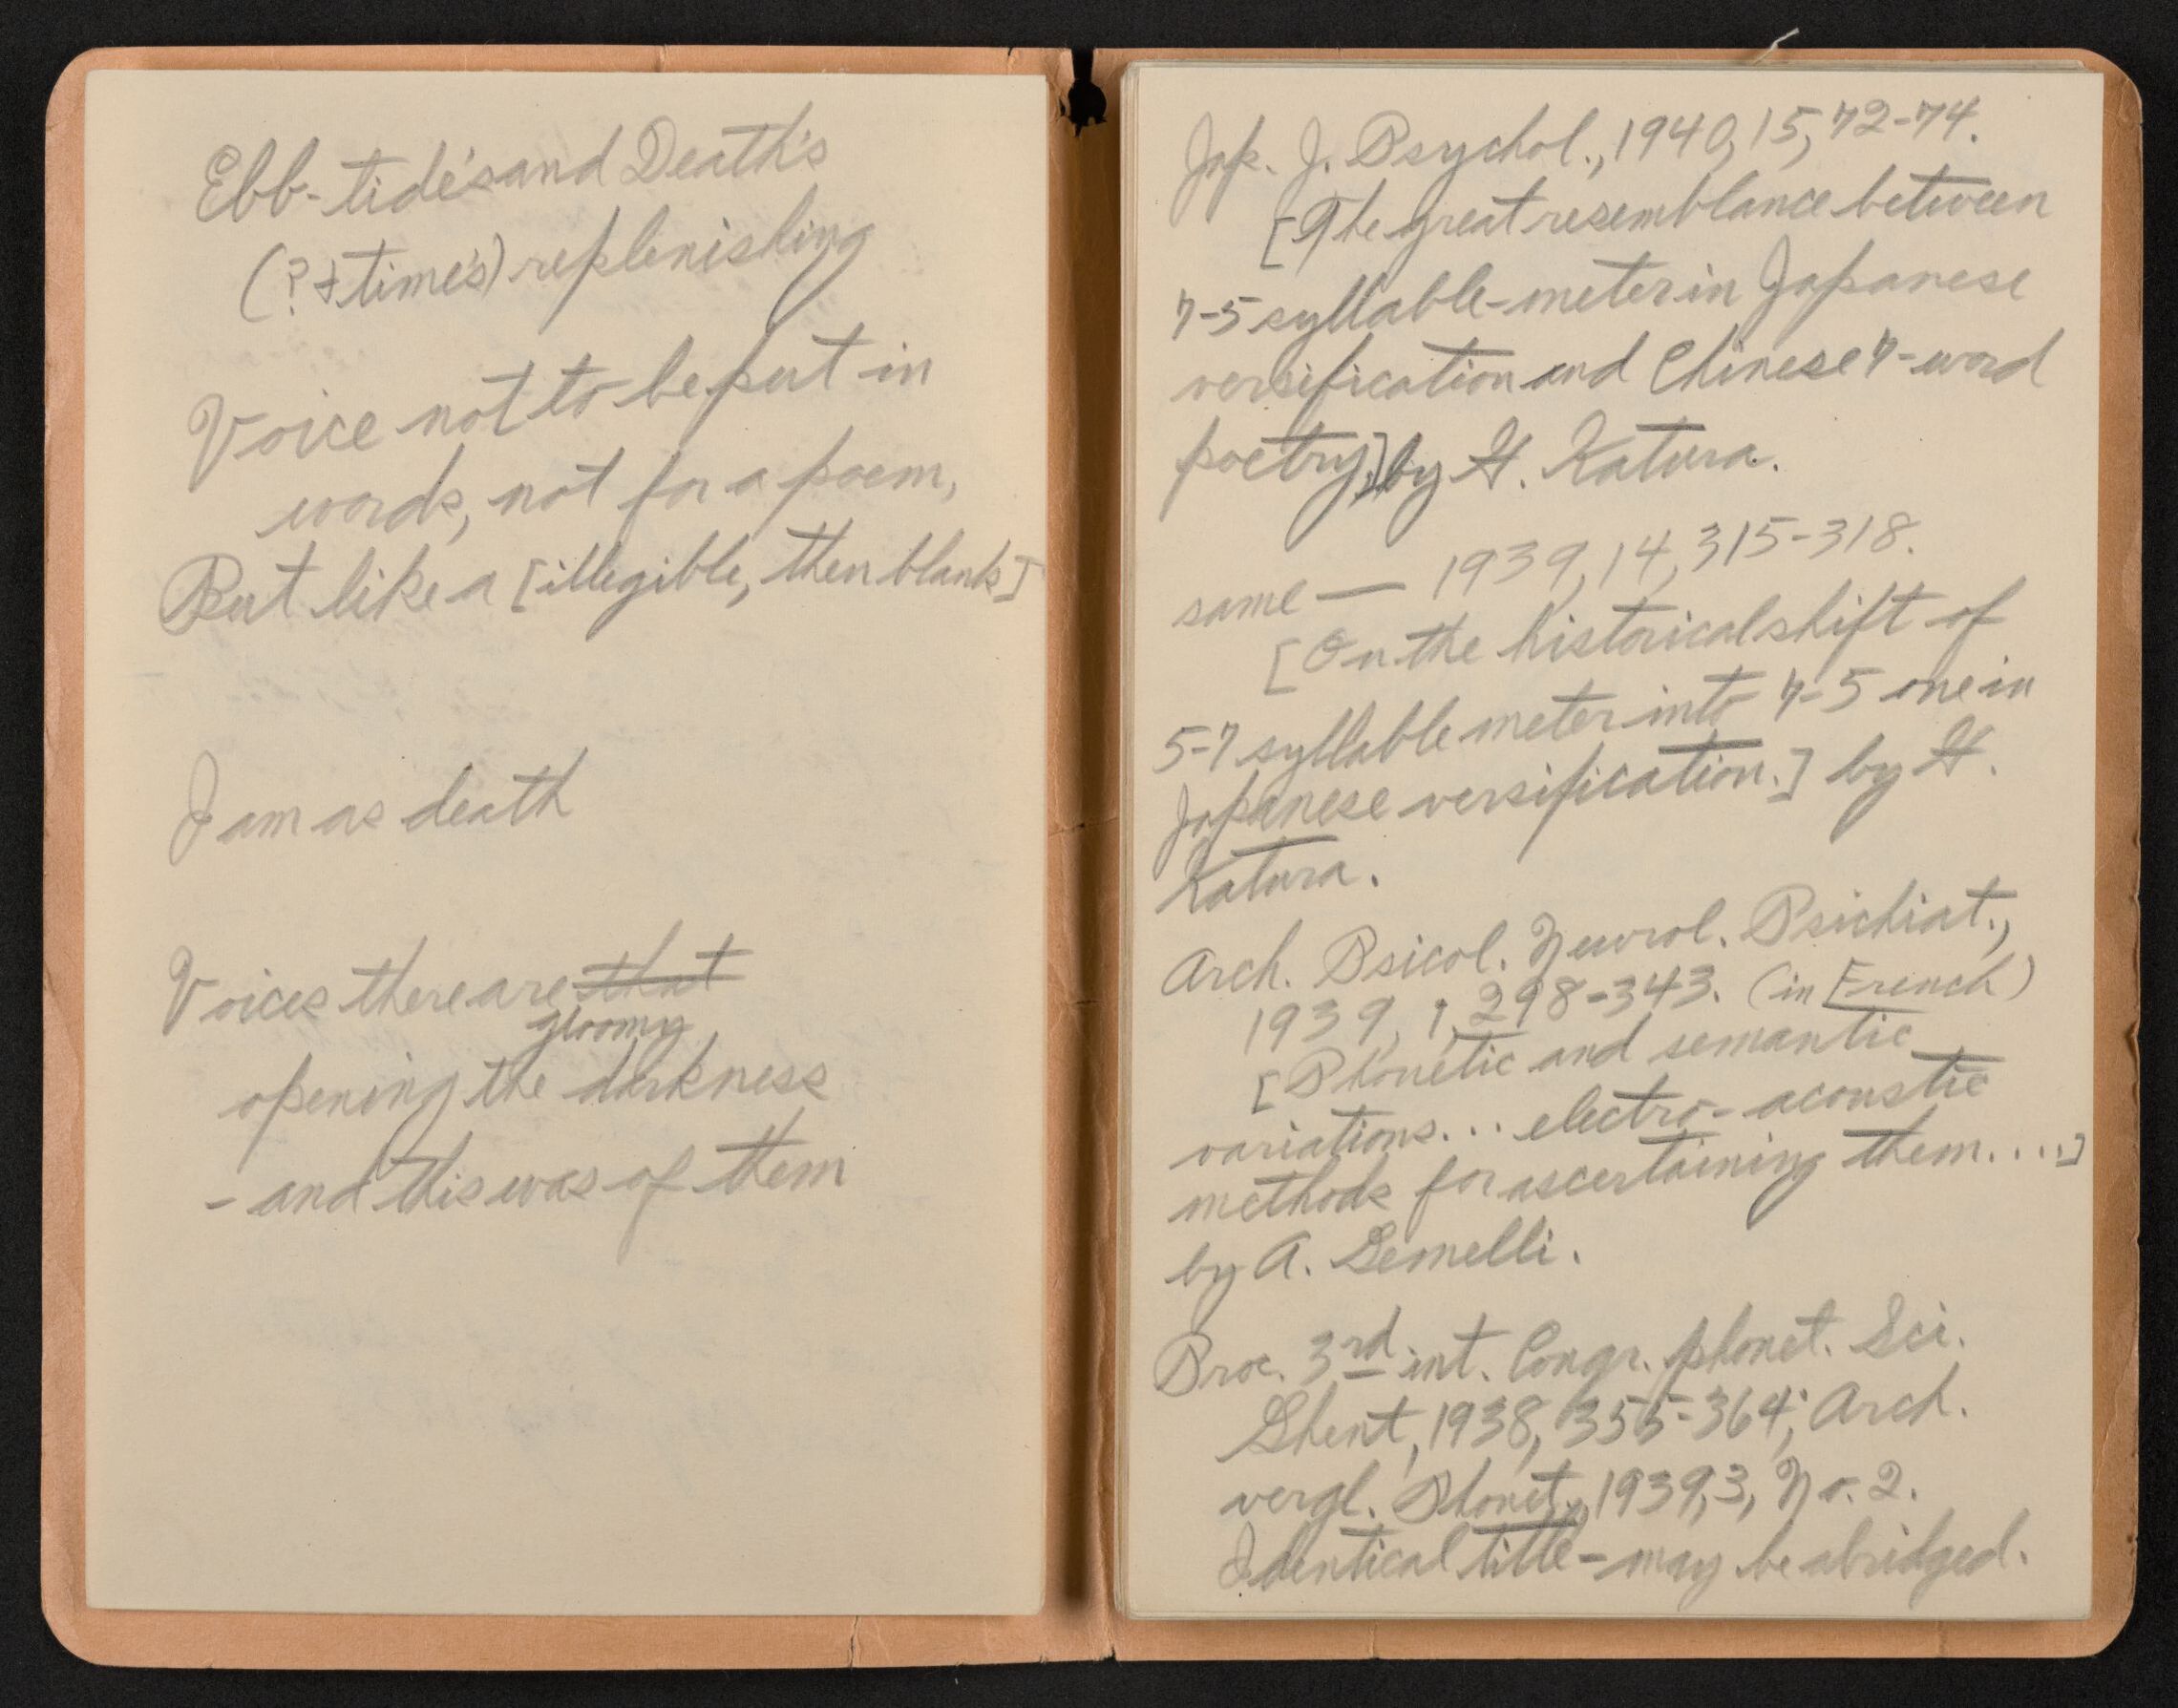 Ebb-tide's and Death's
(? + time's) replenishing
Voice not to be put in
words, not for a poem,
But like a [illegible, then blank]
I am as death
Voices there are that
gloomy
opening the darkness
- and this was of them
Jap. J. Psychol., 1940, 15, 72-74.
[The great resemblance between
7-5 syllable-meter in Japanese
versification and Chinese 7-word
poetry.] by H. Katura.
same — 1939, 14, 315-318.
[On the historical shift of
5-7 syllable meter into 7-5 one in
Japanese versification.] by H.
Katura.
Arch. Psicol. Neurol. Psichiat.,
1939, 1, 298-343. (in French)
[Phonetic and semantic
variations... electro-acoustic
methods for ascertaining them....]
by A. Gemelli.
Proc. 3rd int. Congr. phonet. Sci.
Ghent, 1938, 355-364; Arch.
vergl. Phonet., 1939, 3, No. 2.
Identical title - may be abridged.